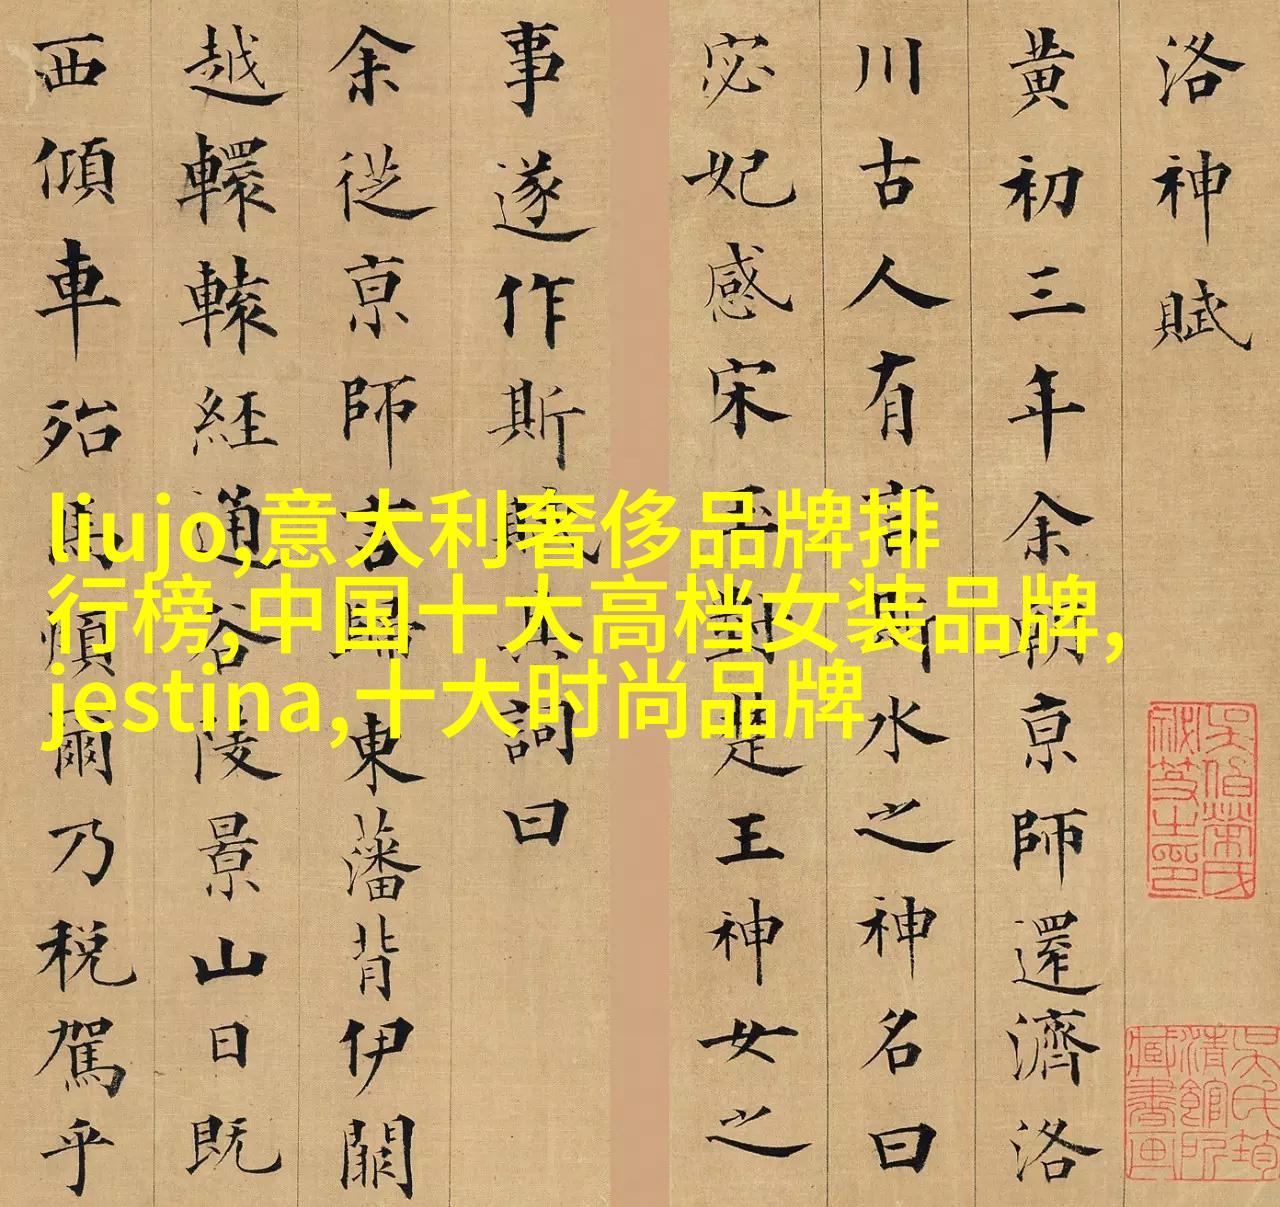 洛神賦
黄初三年余朝亰師還濟洛
川古人有言斯水之神名曰
宓妃感宋玉對楚王神女之
事遂作斯賦其詞曰
余從亰師言歸東藩背伊闕
越轘轅經通谷陵景山日既
西傾車殆馬煩爾乃稅駕乎
吳氏筠
清館所
藏書畫
liujo,意大利奢侈品牌排
行榜,中国十大高档女装品牌,
jestina,十大时尚品牌